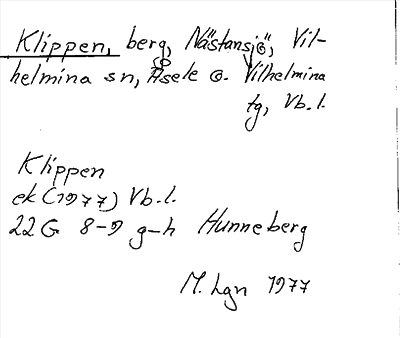 Klippen, berg, Nästansjö, Vil-
helmina sn, Åsele o. Vilhelmina
tg, Vb. l.
Klippen
ek (1977) Vb. l.
22 G 8-9 g-h Hunneberg
M. Lgn 1977